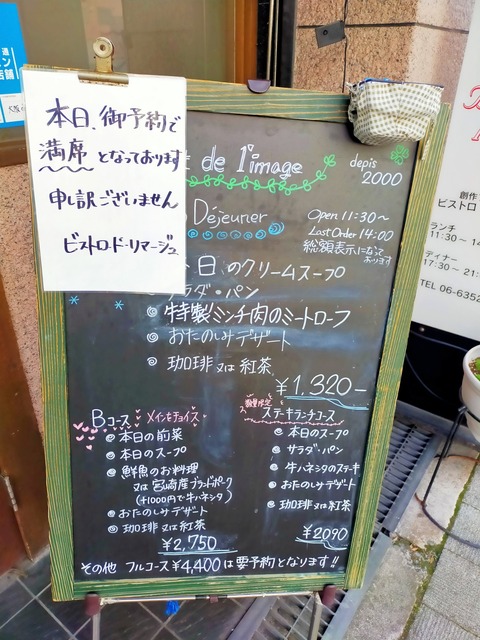 本日、御予約で
満席となっております
申し訳ございません
ビストロ・ド・リマージュ
de l'image
depis
2000
Déjeuner
Open 11:30~
Last Order 14:00
総額表示になって
おります
日のクリームスープ
サラダ・パン
特製ミンチ肉のミートローフ
おたのしみデザート
珈琲又は紅茶
¥1.320-
Bコース メインをチョイス
本日の前菜
本日のスープ
鮮魚のお料理
又は宮崎産ブランドポーク
(+1000円で牛ハネシタ)
おたのしみデザート
珈琲又は紅茶
¥2,750
数量限定
ステーキランチコース
本日のスープ
サラダ・パン
牛ハネシタのステーキ
おたのしみデザート
珈琲又は紅茶
¥2090
その他 フルコース¥4,400は要予約となります!!
創作
ビストロ
ランチ
11:30~14
ディナー
17:30~21:
TEL 06-6352